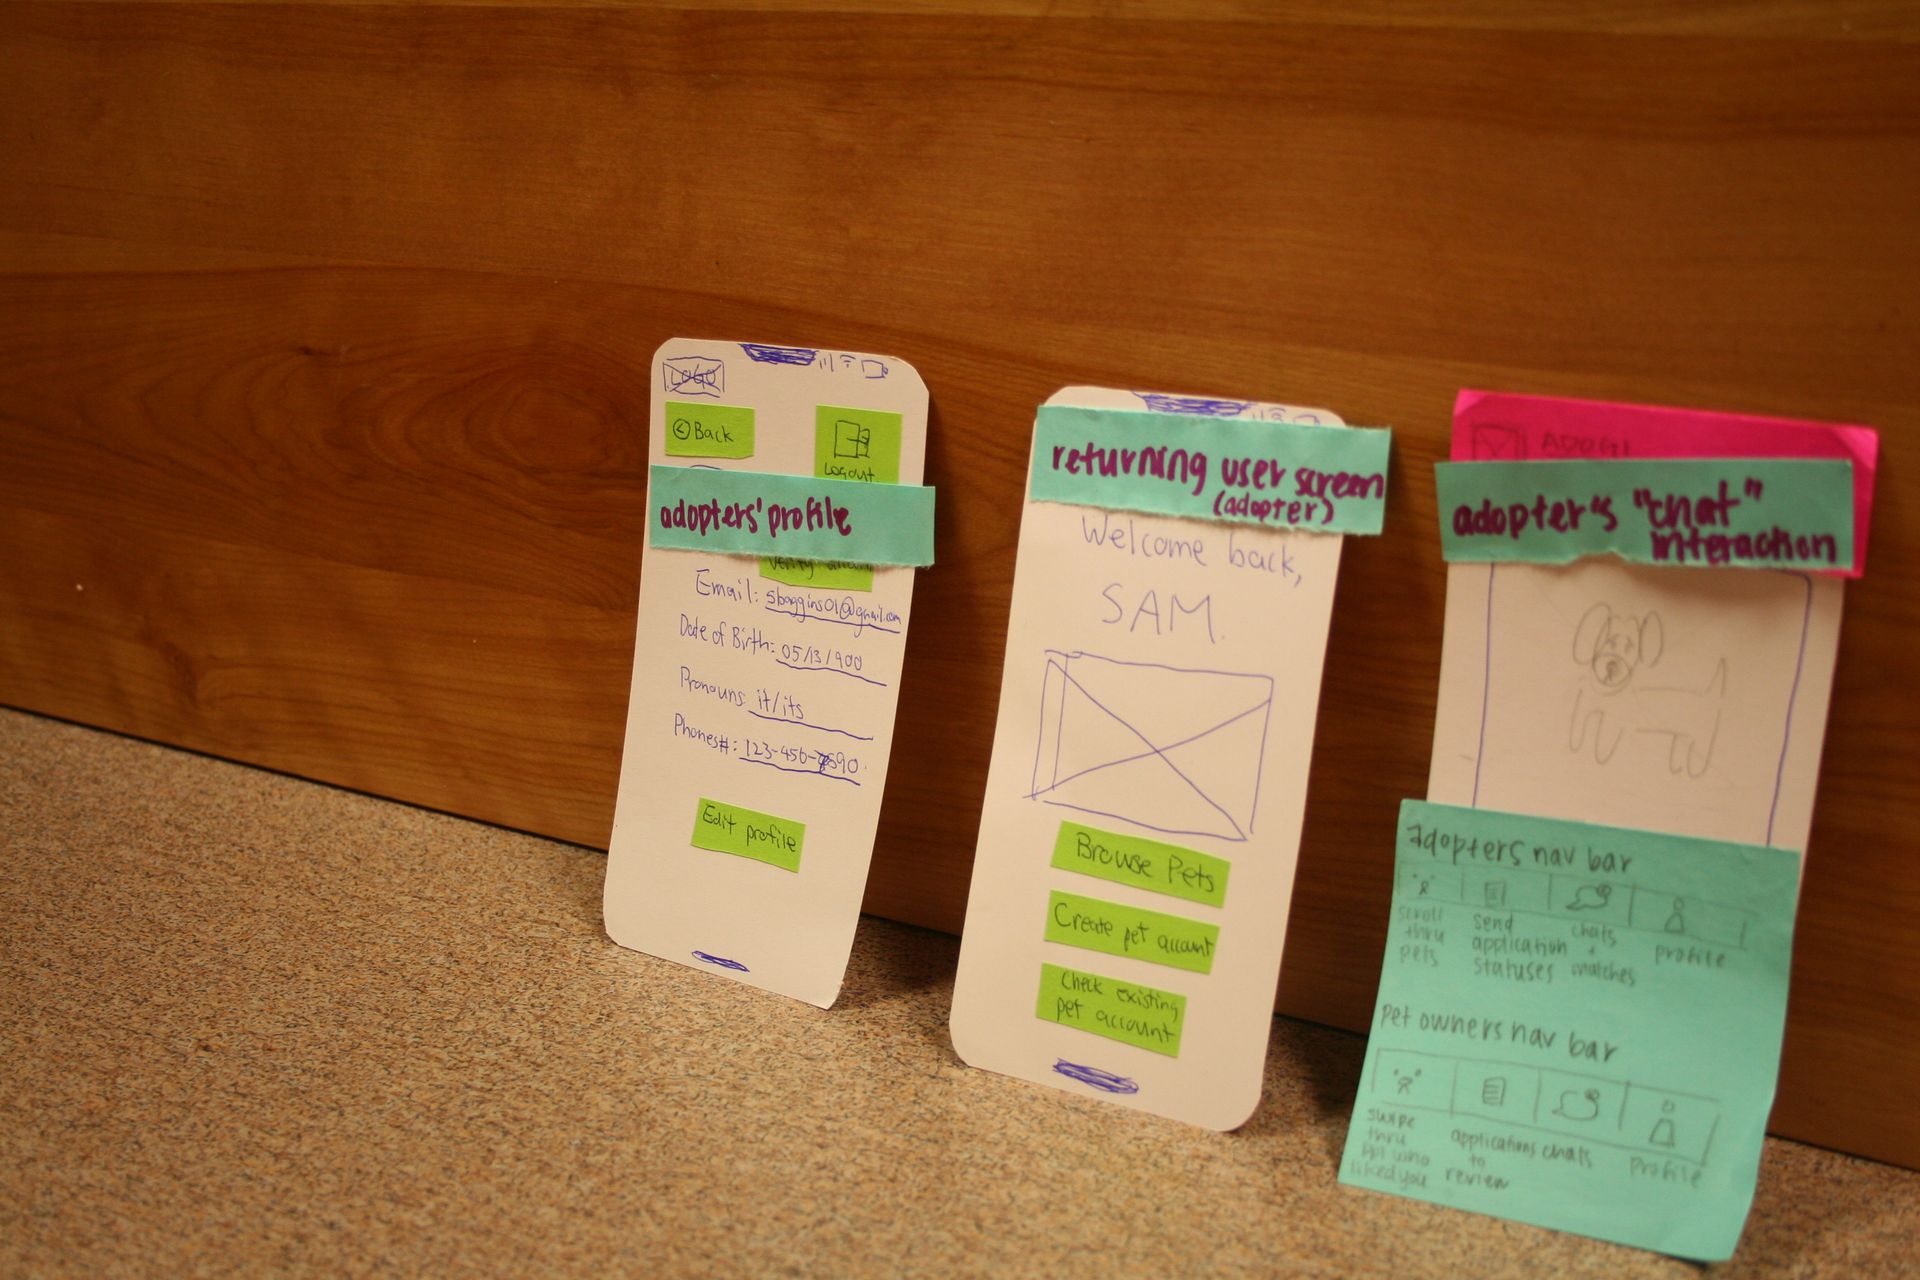 LOGO
Back
Logout
adopters' profile
Verify account
Email: sbaggins01@gmail.com
Date of Birth: 05/13/900
Pronouns: it/its
Phones#: 123-456-7890
Edit profile
returning user screen
(adopter)
Welcome back,
SAM.
Browse Pets
Create pet account
Check existing
pet account
adopter's "chat"
interaction
adopters nav bar
scroll
thru
pets
send
application
statuses
chats
+
matches
profile
pet owners nav bar
swipe
thru
ppl who
liked you
applications
to
review
chats
profile